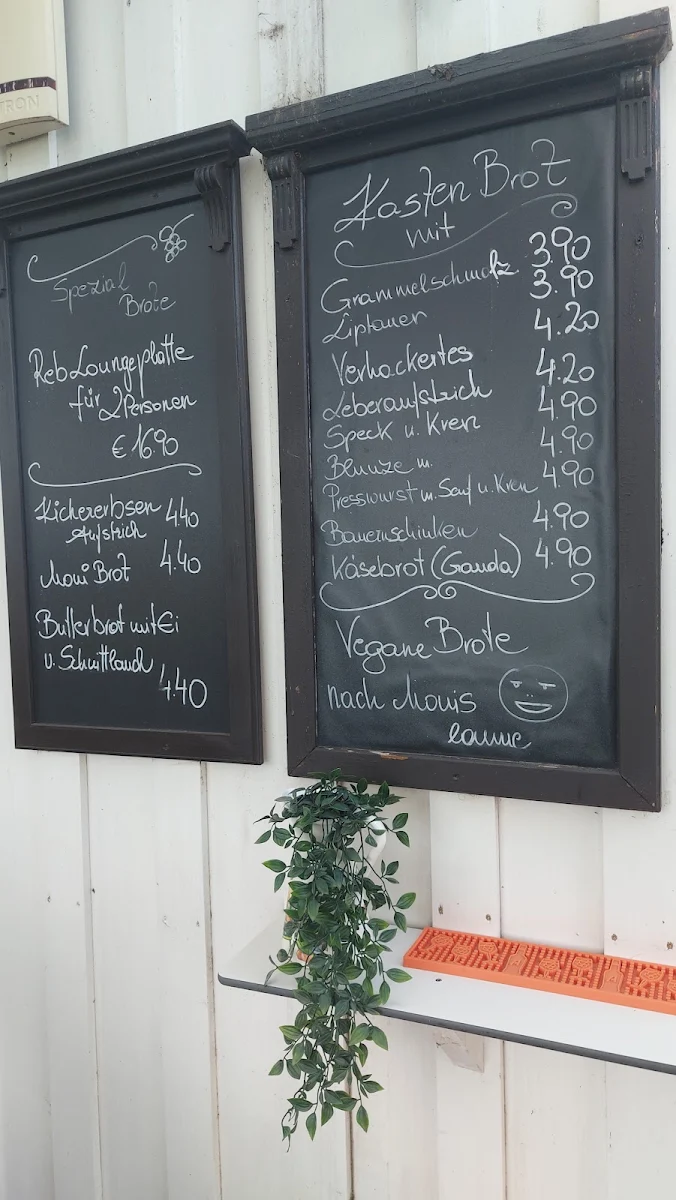 TRON
Spezial
Brote
RebLoungeplatte
für 2 Personen
€ 16.90
Kichererbsen 4.40
Aufstrich
Moni Brot 4.40
Butterbrot mit Ei
u. Schnittlauch
4.40
Kasten Brot
mit
Grammelschmalz 3.90
Liptauer 3.90
Verhackertes 4.20
Leberaufstrich 4.20
Speck u. Kren 4.90
Blunze m. 4.90
Presswurst m. Senf u. Kren 4.90
Bauernschinken 4.90
Käsebrot (Gauda) 4.90
Vegane Brote
nach Monis
laune